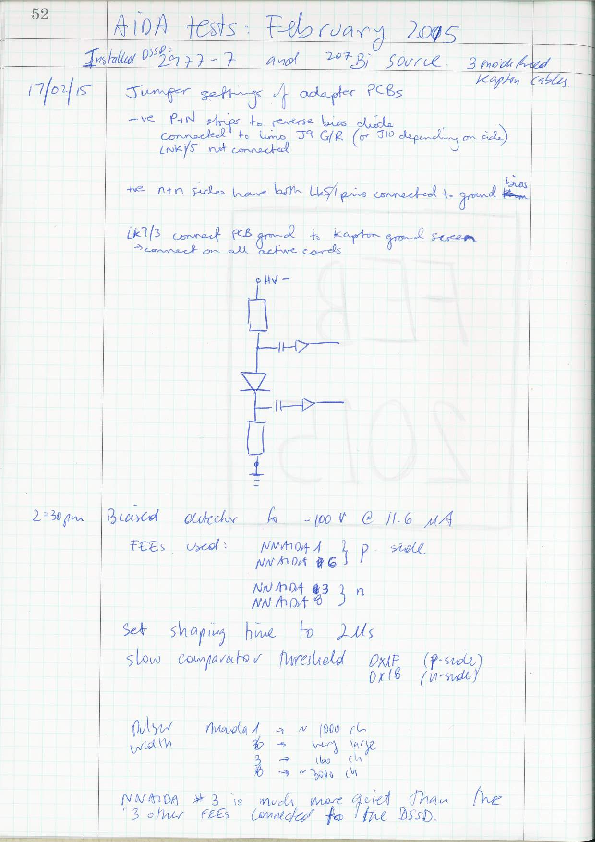 52
AIDA tests: February 2015
Installed DSSD: 2977-7 and 207Bi source. 3 modified
Kapton cables
17/02/15 Jumper settings of adapter PCBs
-ve p+n strips to reverse bias diode
connected to Lemo J9 G/R (or J10 depending on side)
LNK4/5 not connected
+ve n+n sides have both LK5/1 pins connected to ground bias
LK7/3 connect PCB ground to Kapton ground screen
→ connect on all active cards
HV -
2:30pm Biased detector to -100 V @ 11.6 μA
FEEs used: NNAIDA 1 } p side
NNAIDA 6
NNAIDA 3 } n
NNAIDA 8
Set shaping time to 2μs
slow comparator threshold 0x1F (p-side)
0x18 (n-side)
Pulser nnaida1 → ~ 1800 ch
width → very large
3 → 160 ch
8 → ~ 300 ch
NNAIDA #3 is much more quiet than the
3 other FEEs connected to the DSSD.
FEB
2015